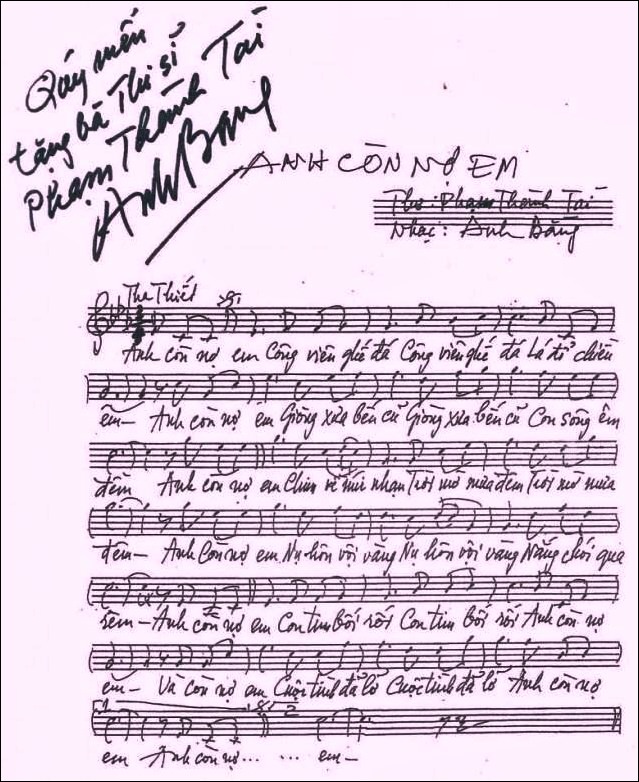 Qúy mến
tặng bà Thi sĩ
Phạm Thành Tài
Anh Bằng
ANH CÒN NỢ EM
Thơ: Phạm Thành Tài
Nhạc: Anh Bằng
Tha Thiết
Anh còn nợ em Công viên ghế đá Công viên ghế đá Lá đổ chiều
êm- Anh còn nợ em Giòng xưa bến cũ Giòng xưa bến cũ Con sông êm
đềm Anh còn nợ em Chim về núi nhạn Trời mờ mưa đêm Trời mờ mưa
đêm- Anh Còn nợ em Nụ hôn vội vàng Nụ hôn vội vàng Nắng chói qua
rèm- Anh còn nợ em Con tim bối rối Con tim bối rối Anh còn nợ
em- Và còn nợ em Cuộc tình đã lỡ Cuộc tình đã lỡ Anh còn nợ
1 2
em Anh còn nợ... ... em-